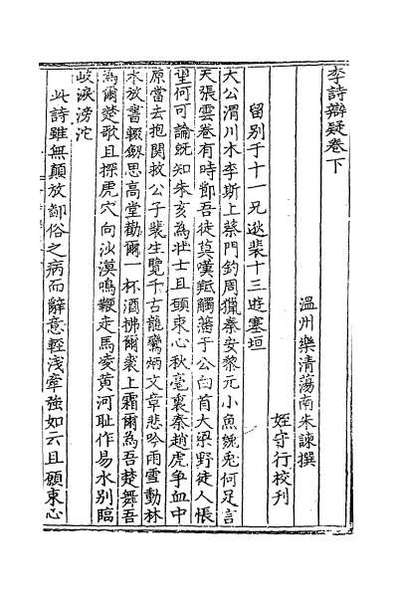 李詩辯疑卷下
溫州樂清蕩南朱諫撰
姪守行校刊
留別于十一兄逖裴十三遊塞垣
大公渭川水李斯上蔡門釣周獵秦安黎元小魚兔何足言
天張雲卷有時節吾徒莫嘆羝觸藩于公白首大梁野使人悵
望何可論既知朱亥為壯士且願束心秋毫裏秦趙虎爭血中
原當去抱關救公子裴生覽千古龍鸞炳文章悲吟雨雪動林
木放書輟劍思高堂勸爾一杯酒拂爾裘上霜爾為吾楚舞吾
為爾楚歌且探虎穴向沙漠鳴鞭走馬凌黃河耻作易水別臨
岐淚滂沱
此詩雖無顛放鄙俗之病而辭意輕淺牽強如云且願束心